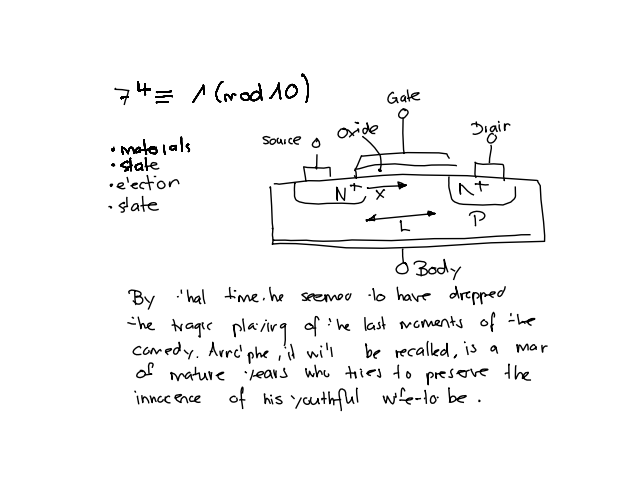 7⁴ ≡ 1 (mod 10)
• materials
• state
• election
• state
Gate
Source
Oxide
Drair
N+
X
N+
L
P
Body
By that time, he seemed to have dropped
the tragic playing of the last moments of the
comedy. Arnolphe, it will be recalled, is a man
of mature years who tries to preserve the
innocence of his youthful wife-to be.